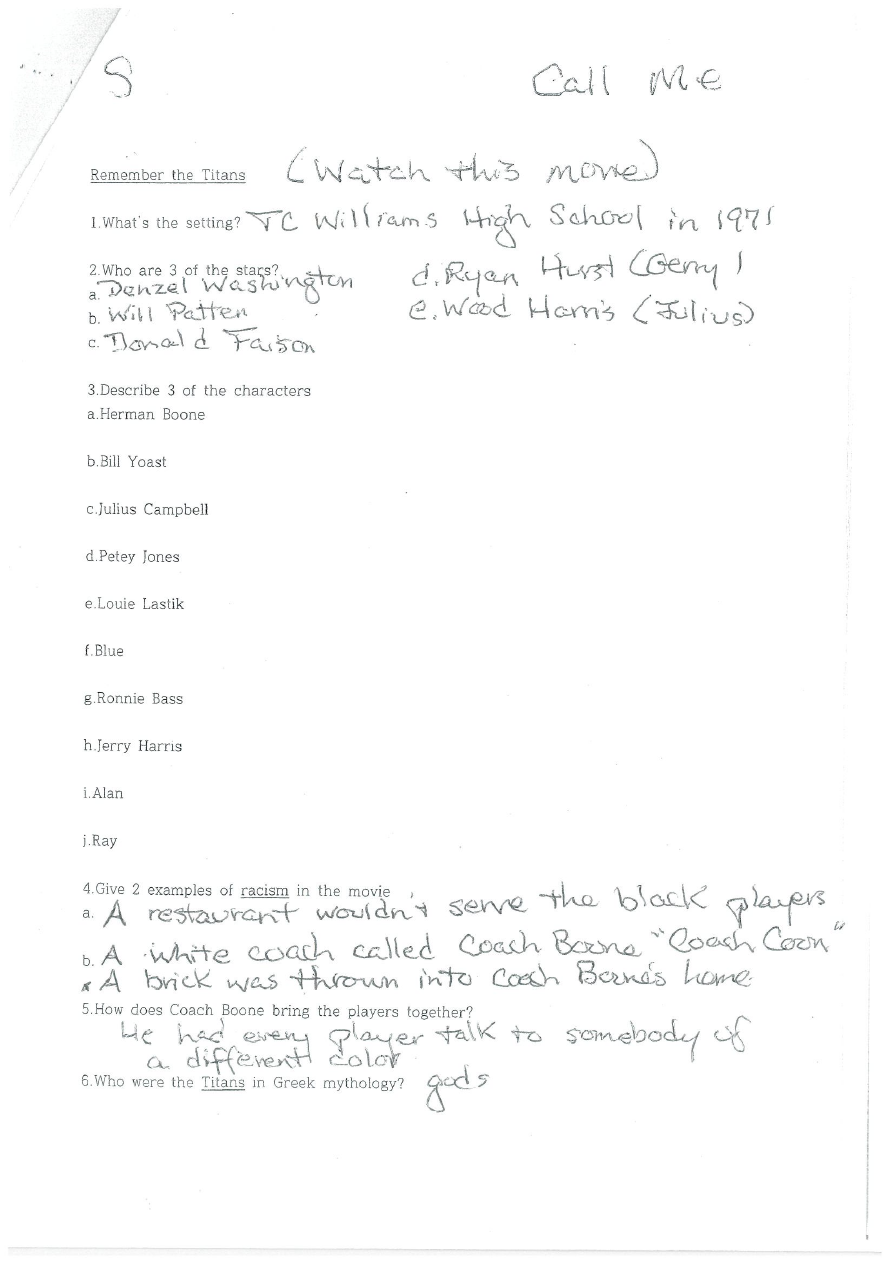 S Call Me
Remember the Titans (Watch this movie)
1.What's the setting? TC Williams High School in 1971
2.Who are 3 of the stars?
a. Denzel Washington d. Ryan Hurst (Gerry)
b. Will Patten e. Wood Harris (Julius)
c. Donald Faison
3.Describe 3 of the characters
a.Herman Boone
b.Bill Yoast
c.Julius Campbell
d.Petey Jones
e.Louie Lastik
f.Blue
g.Ronnie Bass
h.Jerry Harris
i.Alan
j.Ray
4.Give 2 examples of racism in the movie
a. A restaurant wouldn't serve the black players
b. A white coach called Coach Boone "Coach Coon"
x A brick was thrown into Coach Boone's home
5.How does Coach Boone bring the players together?
He had every player talk to somebody of
a different color
6.Who were the Titans in Greek mythology? gods